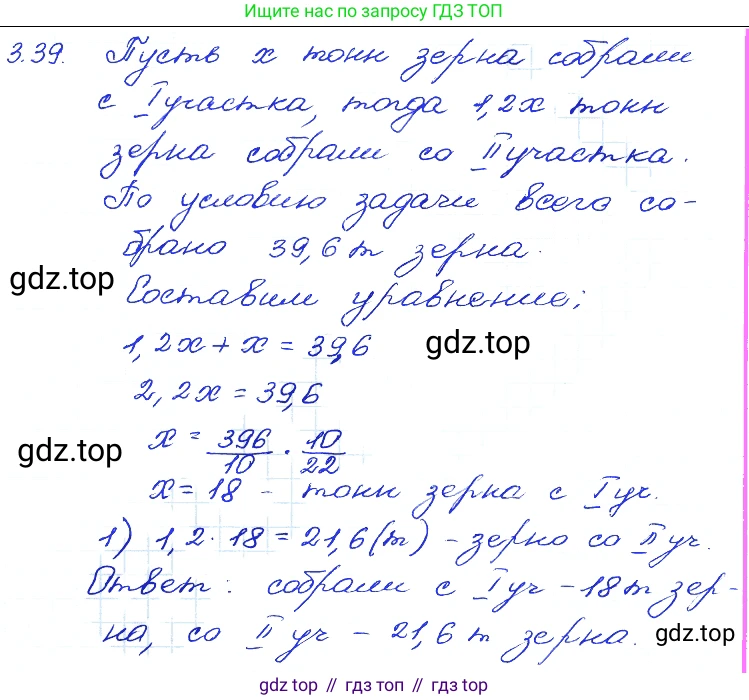 Ищите нас по запросу ГДЗ ТОП
3.39. Пусть x тонн зерна собрали
с I участка, тогда 1,2x тонн
зерна собрали со II участка.
По условию задачи всего со-
брано 39,6 т зерна.
gdz.top
Составим уравнение;
1,2x + x = 39,6
gdz.top
2,2x = 39,6
gdz.top
x = 396/10 · 10/22
x = 18 - тонн зерна с I уч.
1) 1,2 · 18 = 21,6 (т) - зерно со II уч.
Ответ: собрали с I уч - 18 т зер-
на, со II уч - 21,6 т зерна.
gdz.top
gdz top // гдз топ // gdz.top // гдз.топ